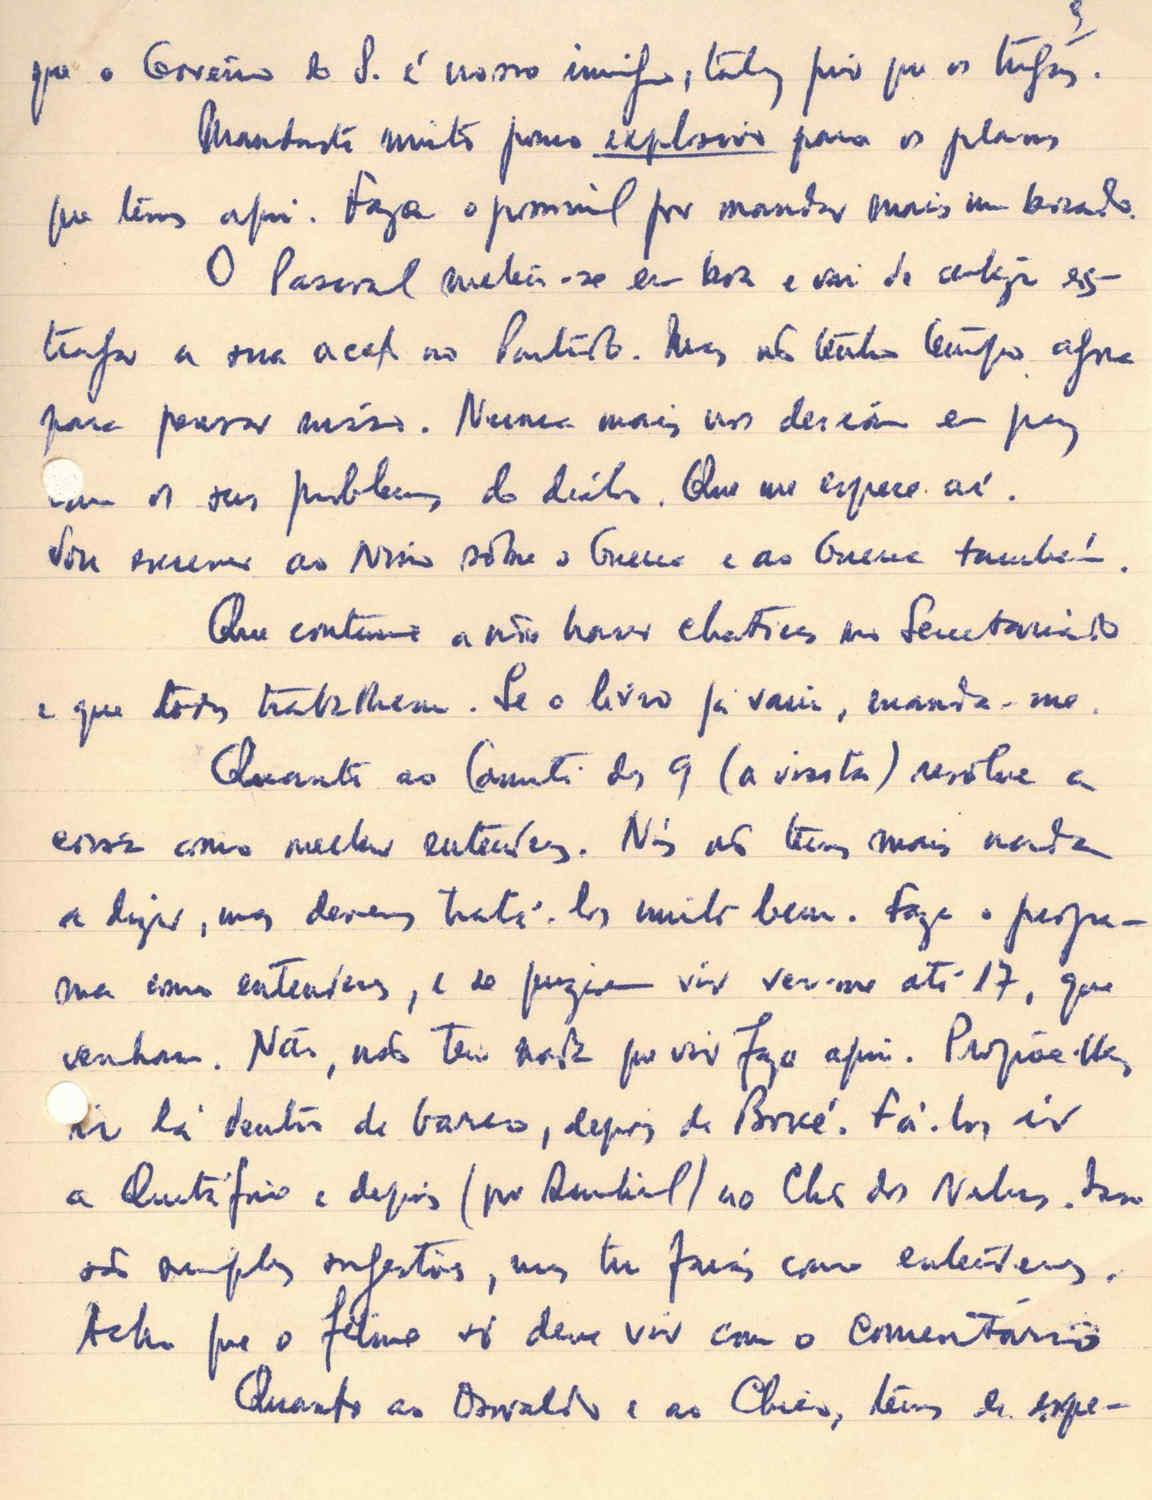 3
que o Govêrno do S. é nosso inimigo, talvez pior que os tugas.
Mandaste muito pouco explosivo para os planos
que temos aqui. Faze o possível por mandar mais um bocado.
O Pascoal meteu-se em boa e vai de certeza es-
tragar a sua acção no Partido. Mas não tenho tempo agora
para pensar nisso. Nunca mais nos deixam em paz
com os seus problemas do diabo. Que me espere aí.
Vou escrever ao Nino sôbre o Guerra e ao Guerra também.
Que continue a não haver chatices no Secretariado
e que todos trabalhem. Se o livro já vem, manda-me.
Quanto ao Comité dos 9 (a visita) resolve a
coisa como melhor entenderes. Nós não temos mais nada
a dizer, mas devemos tratá-los muito bem. Faze o progra-
ma como entenderes, e se puzerem vir ver-me até 17, que
venham. Não, não tem nada que vir fazer aqui. Propõe-lhes
ir lá dentro de barco, depois de Boké. Fá-los ir
a Quitáfine e depois (por) no Chão dos Nalus. Isso
são simples sugestões, mas tu farás como entenderes.
Acho que o filme só deve vir com o comentário
Quanto ao Osvaldo e ao Chico, têm de espe-